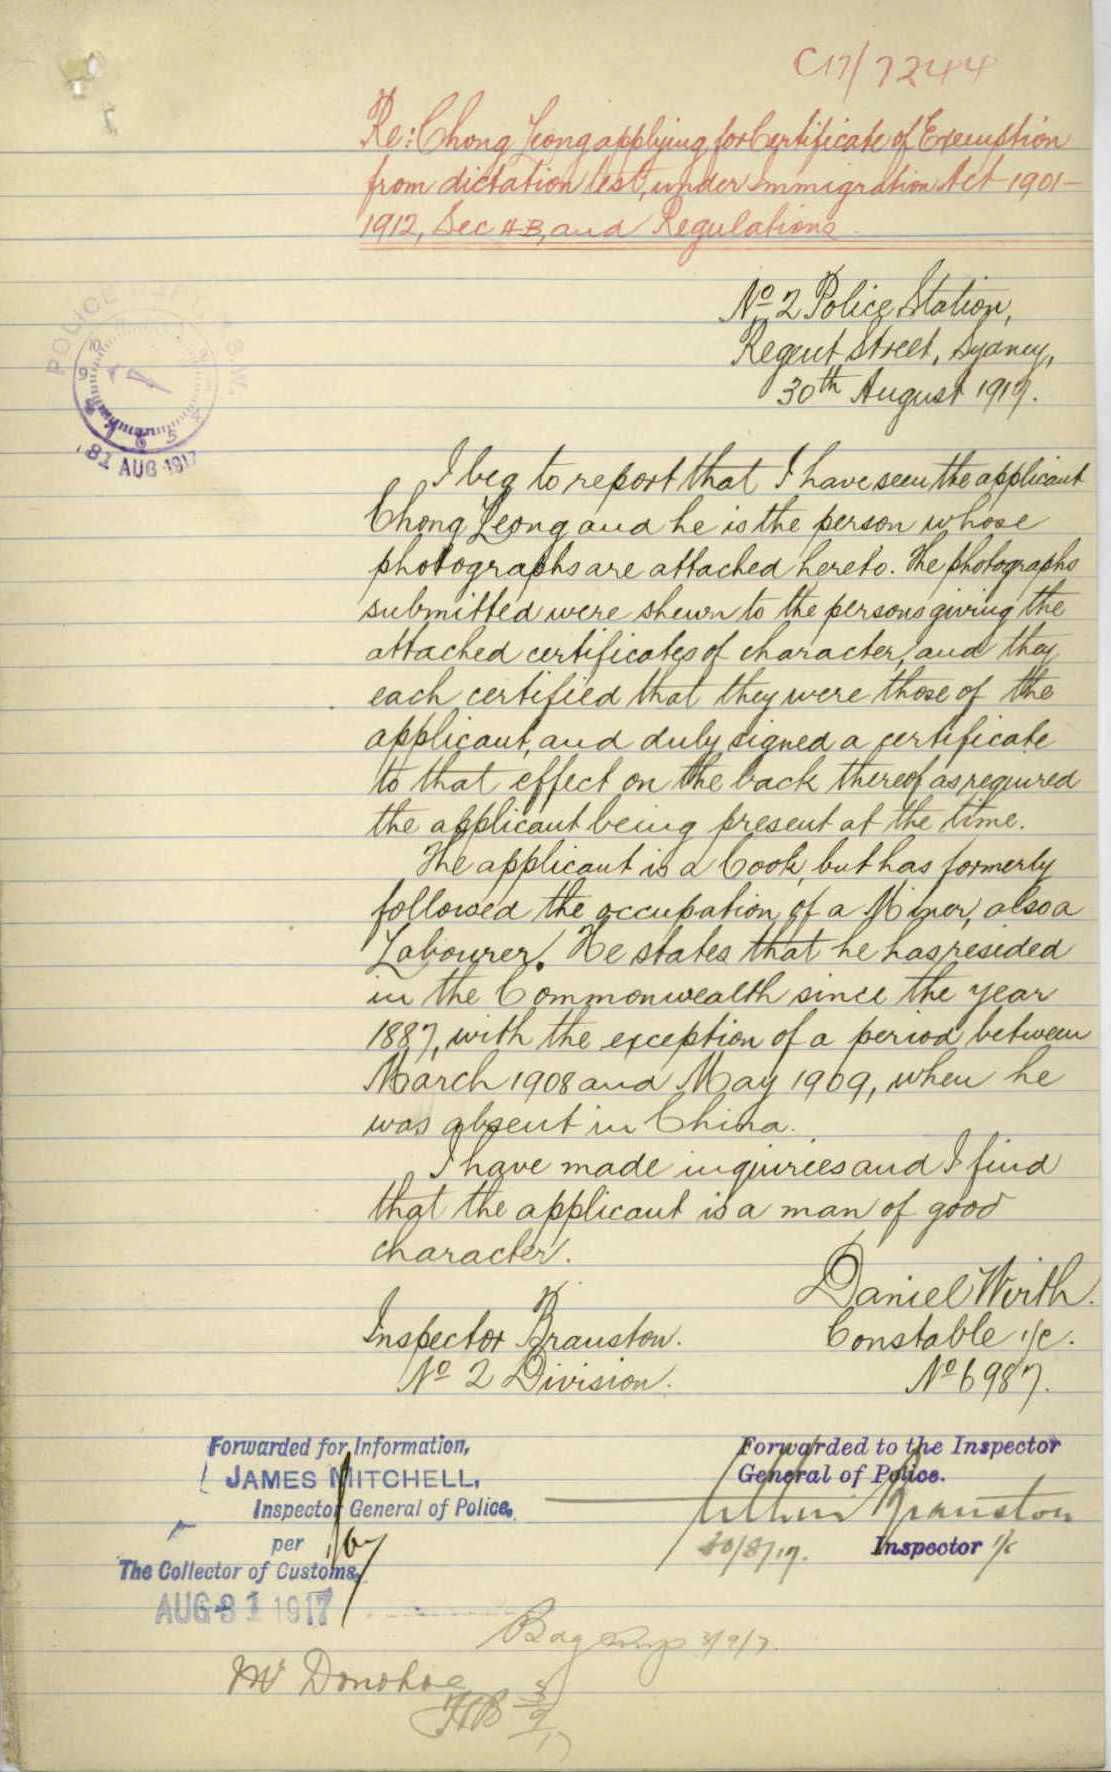 C17/7244
Re: Chong Leong applying for Certificate of Exemption
from dictation test, under Immigration Act 1901-
1912, Sec 4B, and Regulations
No 2 Police Station,
Regent Street, Sydney,
30th August 1917.
POLICE
31 AUG 1917
I beg to report that I have seen the applicant
Chong Leong and he is the person whose
photographs are attached hereto. The photographs
submitted were shewn to the persons giving the
attached certificates of character, and they
each certified that they were those of the
applicant, and duly signed a certificate
to that effect on the back thereof as required
the applicant being present at the time.
The applicant is a Cook, but has formerly
followed the occupation of a Miner, also a
Labourer. He states that he has resided
in the Commonwealth since the year
1887, with the exception of a period between
March 1908 and May 1909, when he
was absent in China.
I have made inquiries and I find
that the applicant is a man of good
character.
Daniel Wirth.
Constable 1/c.
No 6987.
Inspector Branston.
No 2 Division.
Forwarded for Information,
JAMES MITCHELL,
Inspector General of Police,
per
The Collector of Customs,
AUG 31 1917
Forwarded to the Inspector
General of Police.
Branston
30/8/17. Inspector 1/c
3/9/17.
Mr Donohoe
3
9
17